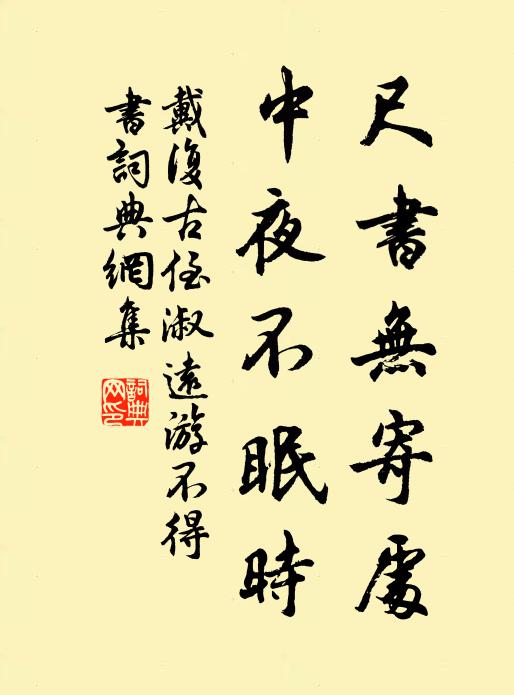 尺書無寄處
中夜不眠時
戴復古侄淑遠游不得
書詞典網集
詞典网印